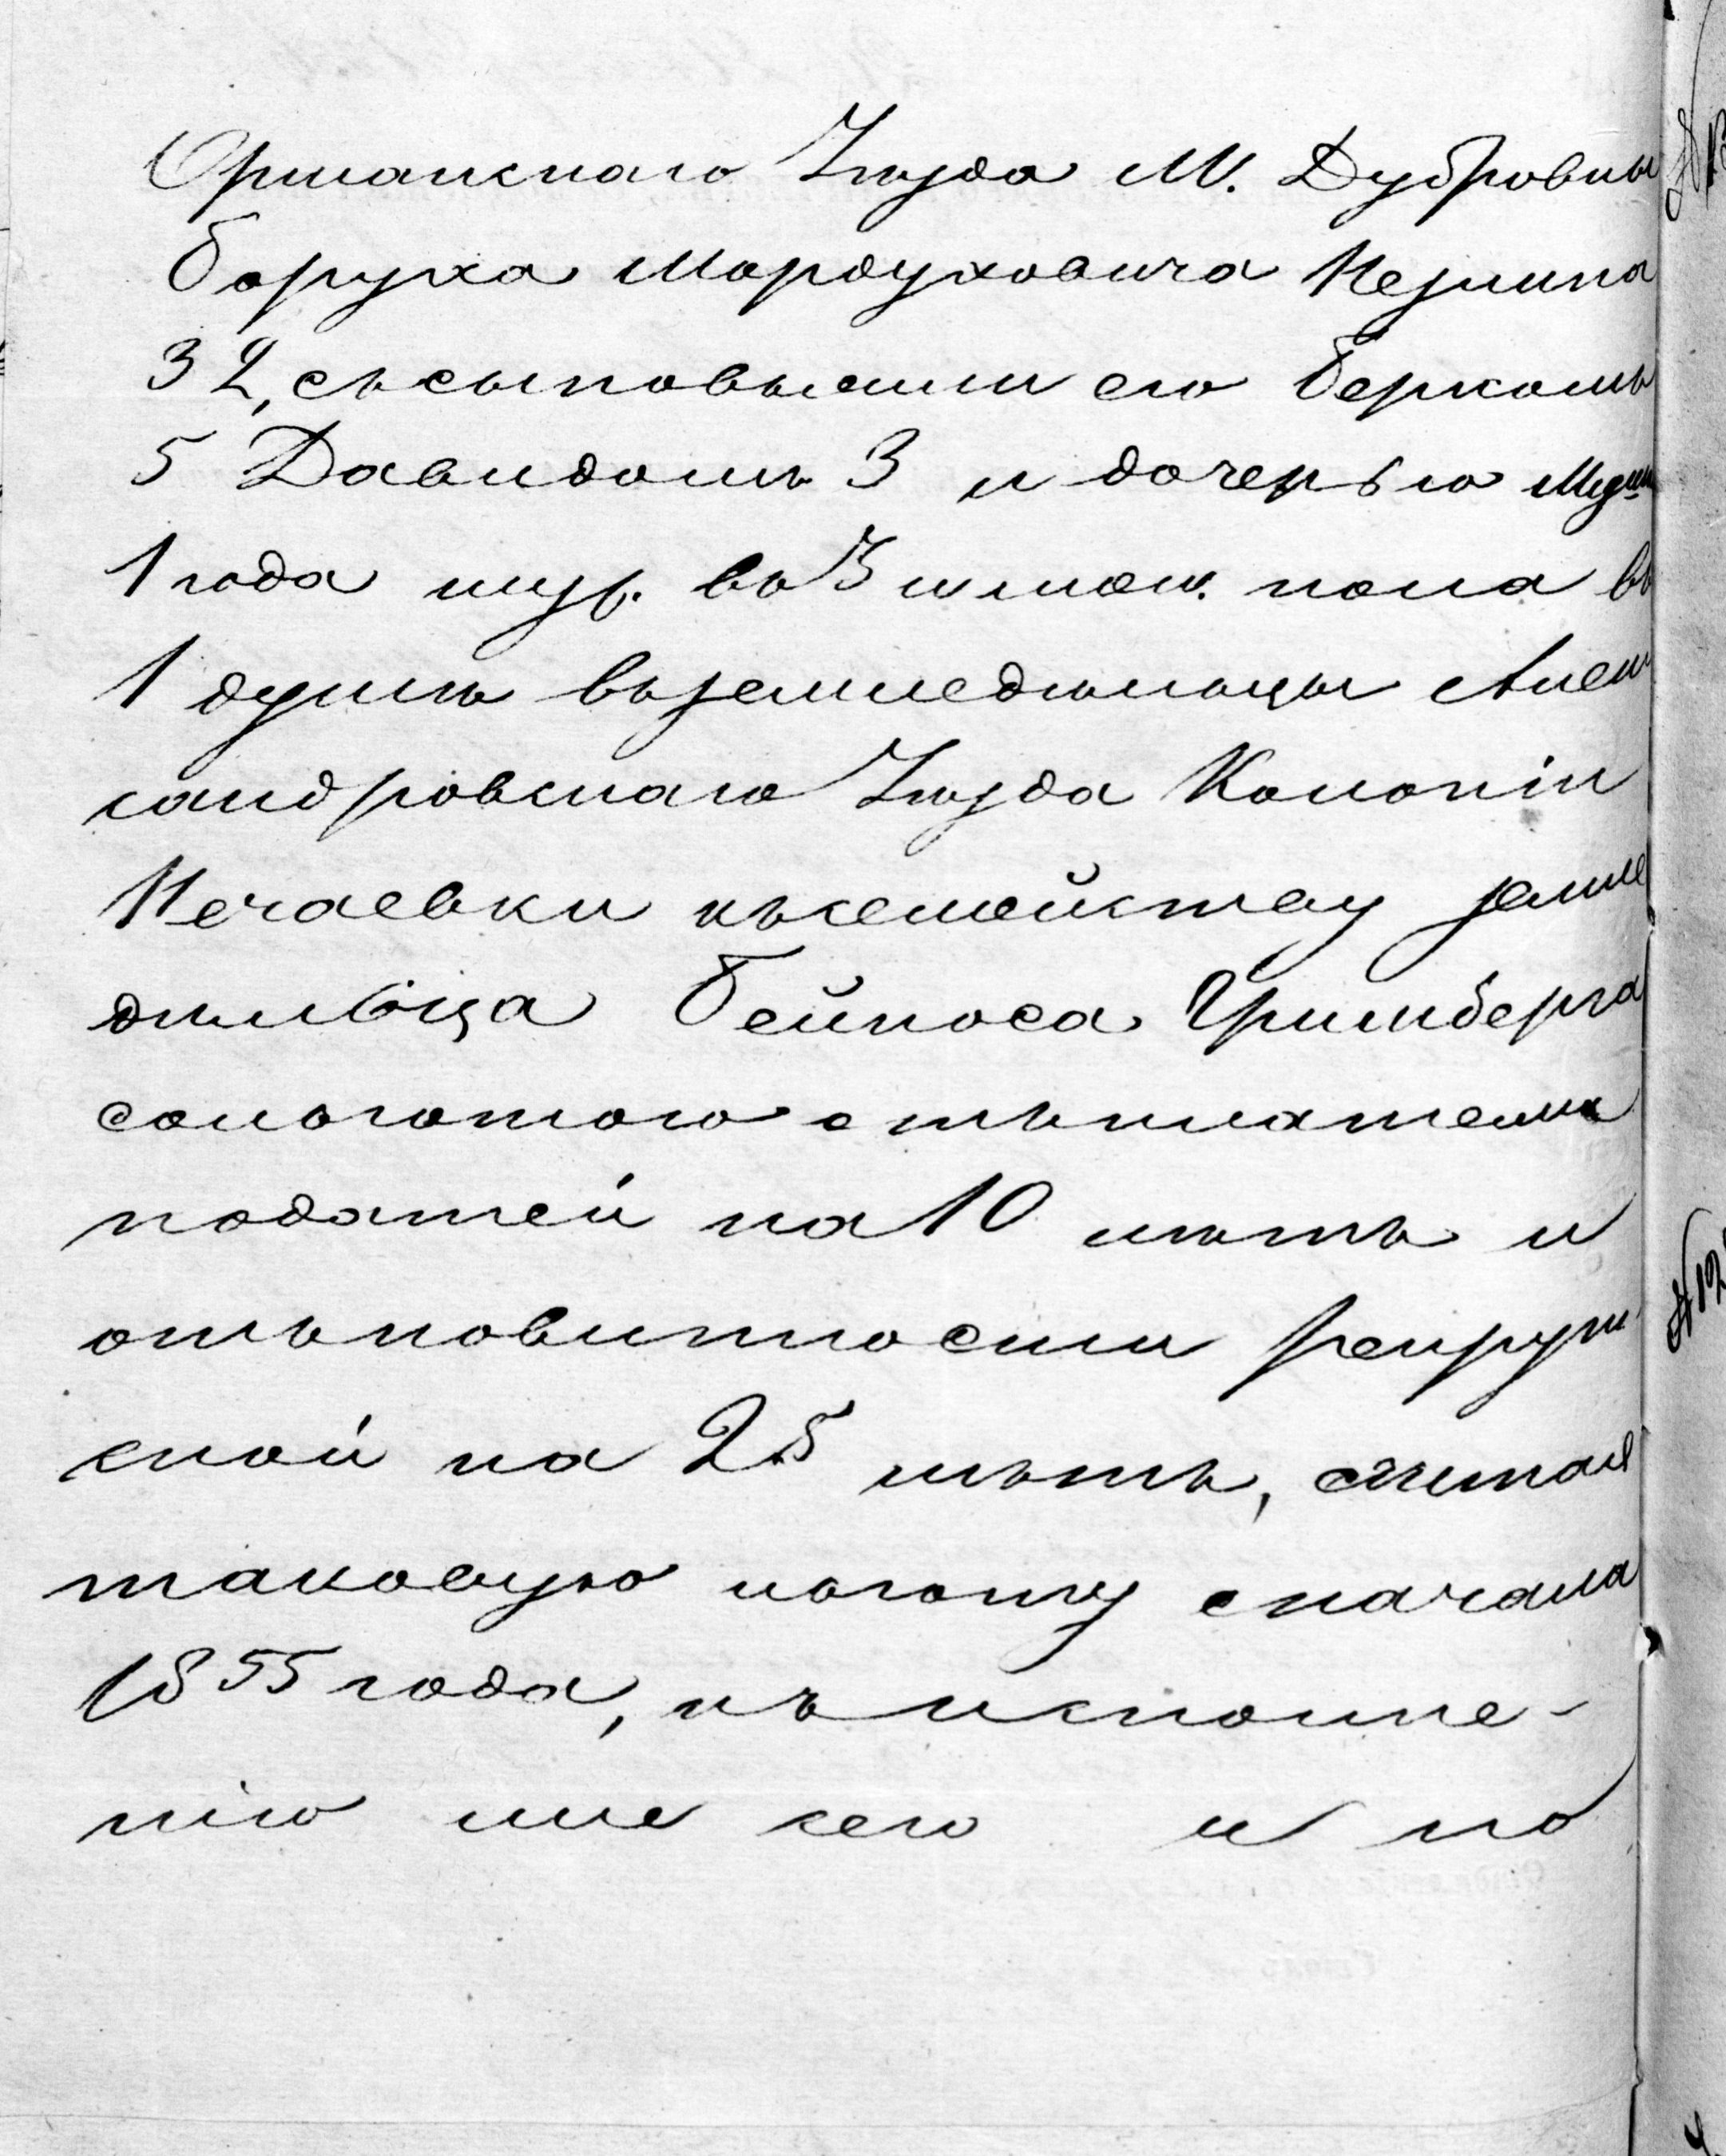 Оршанскаго Уѣзда М. Дубровны
Боруха Мордуховича Незлина
32, съ сыновьями его Беркомъ
5 Давидомъ 3 и дочерью
1 года муж. въ 3 и жен. пола въ
1 душѣ въ земледѣльцы Алек
сандровскаго Уѣзда Колоніи
Нечаевки къ семейству земле
дѣльца Бейноса Гринберга
со льготою отъ платежа
податей на 10 лѣтъ и
отъ повинности рекрут
ской на 25 лѣтъ, считая
таковую льготу с начала
1855 года, къ исполне-
нію же сего и по